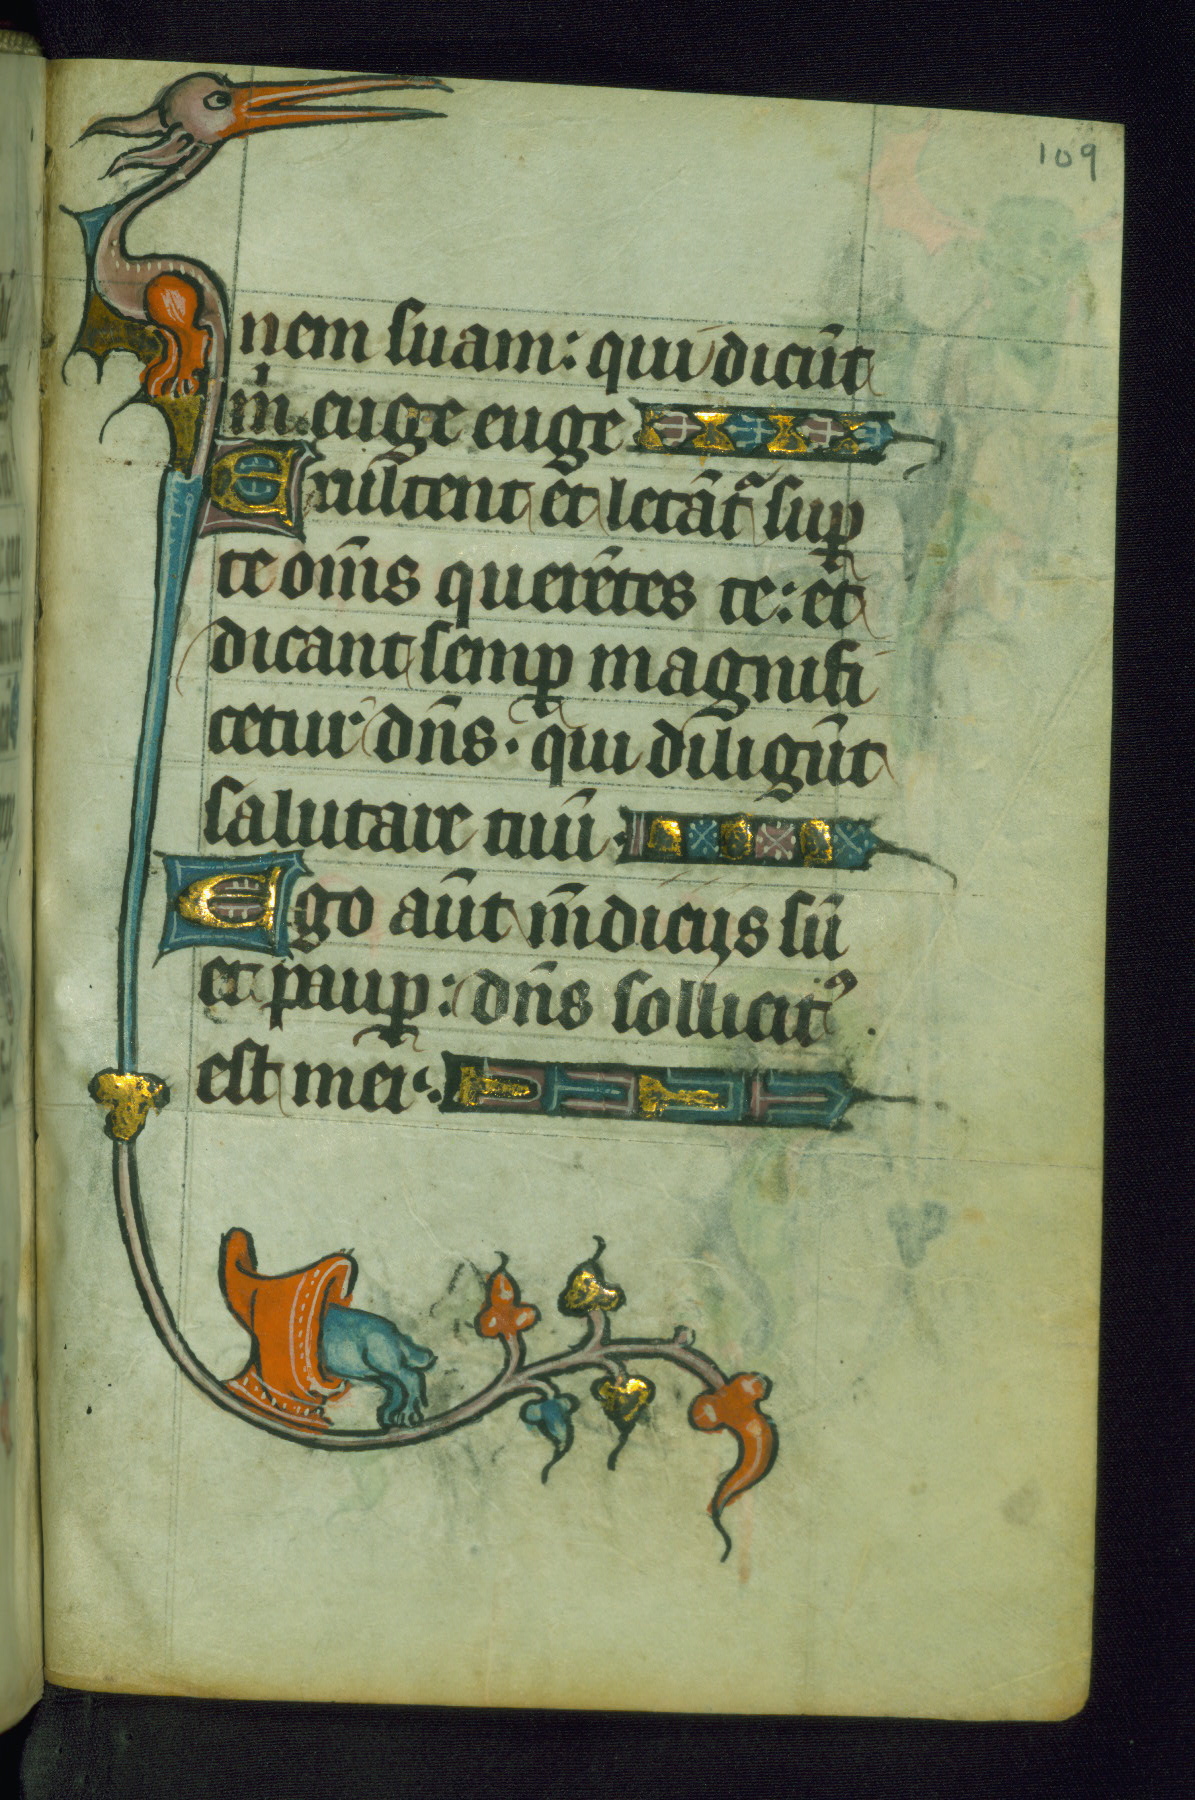 109
nem suam: qui dicūt
m̄ euge euge
Exultent et letāt᷑ sup̱
te om̄s querētes te: et
dicant semp̱ magnifi
cetur dn̄s. qui diligūt
salutare tuū.
Ego aūt m̄dicus sū
et paup̱: dn̄s sollicitꝰ
est mei.